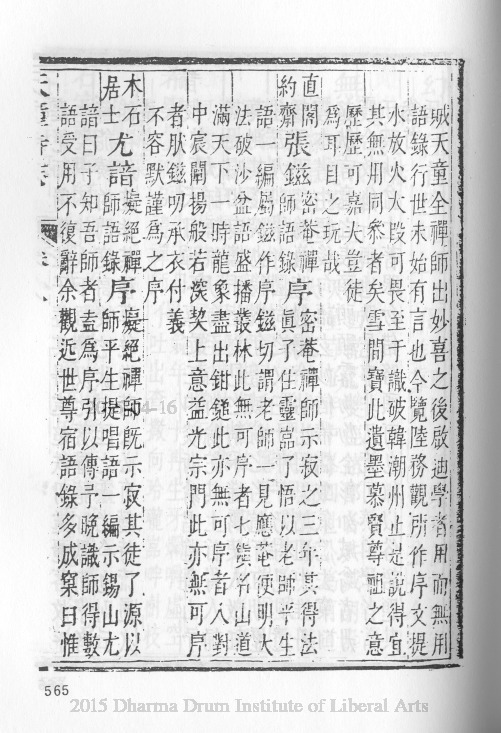 或天童全禪師出妙喜之後啟迪學者用而無用
語錄行世未始有言也今覽陸務觀所作序文提
水放火大段可畏至于識破韓潮州止是說得宜
其無用同叅者矣雪間寶此遺墨慕賢尊祖之意
歷歷可嘉夫豈徒
為耳目之玩哉
直閣張鎡密菴禪師語錄序密菴禪師示寂之三年其得法
約齋眞子住靈嵓了悟以老師平生
語一編屬鎡作序鎡切謂老師一見應菴便明大
法破沙盆語盛播叢林此無可序者七鎮名山道
滿天下一時龍象盡出鉗鎚此亦無可序者入對
中宸闡揚般若深契上意益光宗門此亦無可序
者肰鎡叨承衣付義
不容默謹為之序
木石居士尤諳癡絕禪師語錄序癡絕禪師旣示寂其徒了源以
師平生提唱語一編示錫山尤
諳曰子知吾師者盍為序引以傳予晚識師得數
語受用不復辭余觀近世尊宿語錄多成窠臼惟
天童寺
565
2015 Dharma Drum Institute of Liberal Arts